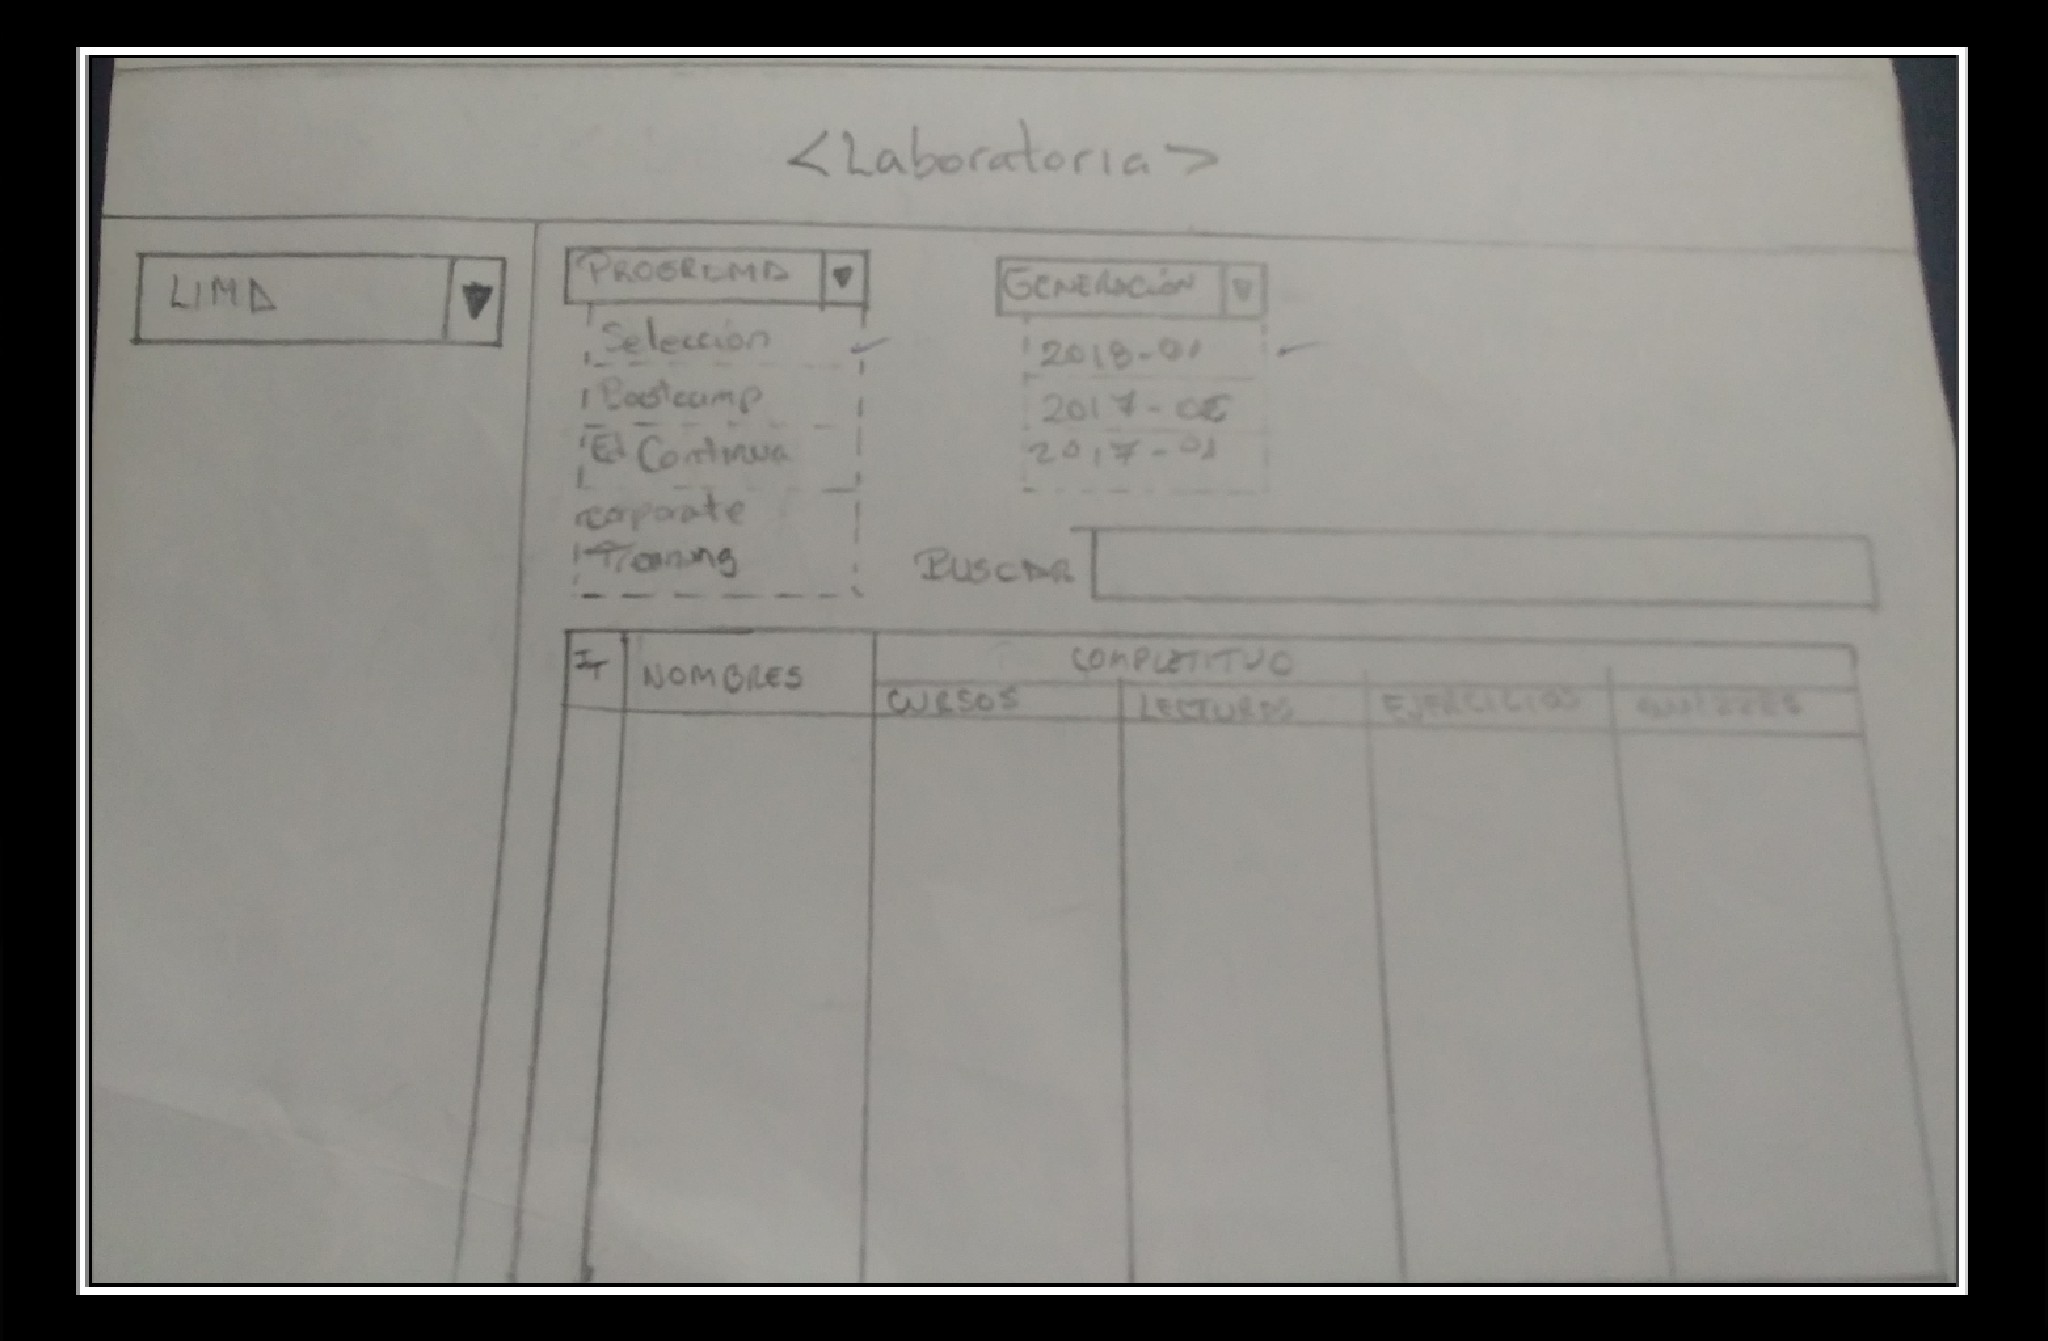 <Laboratoria>
LIMA
PROGRAMA
Selección
Bootcamp
Ed Continua
corporate
Training
GENERACIÓN
2018-01
2017-02
2017-01
BUSCAR
IT
NOMBRES
COMPLETITUD
CURSOS
LECTURAS
EJERCICIOS
QUIZZES